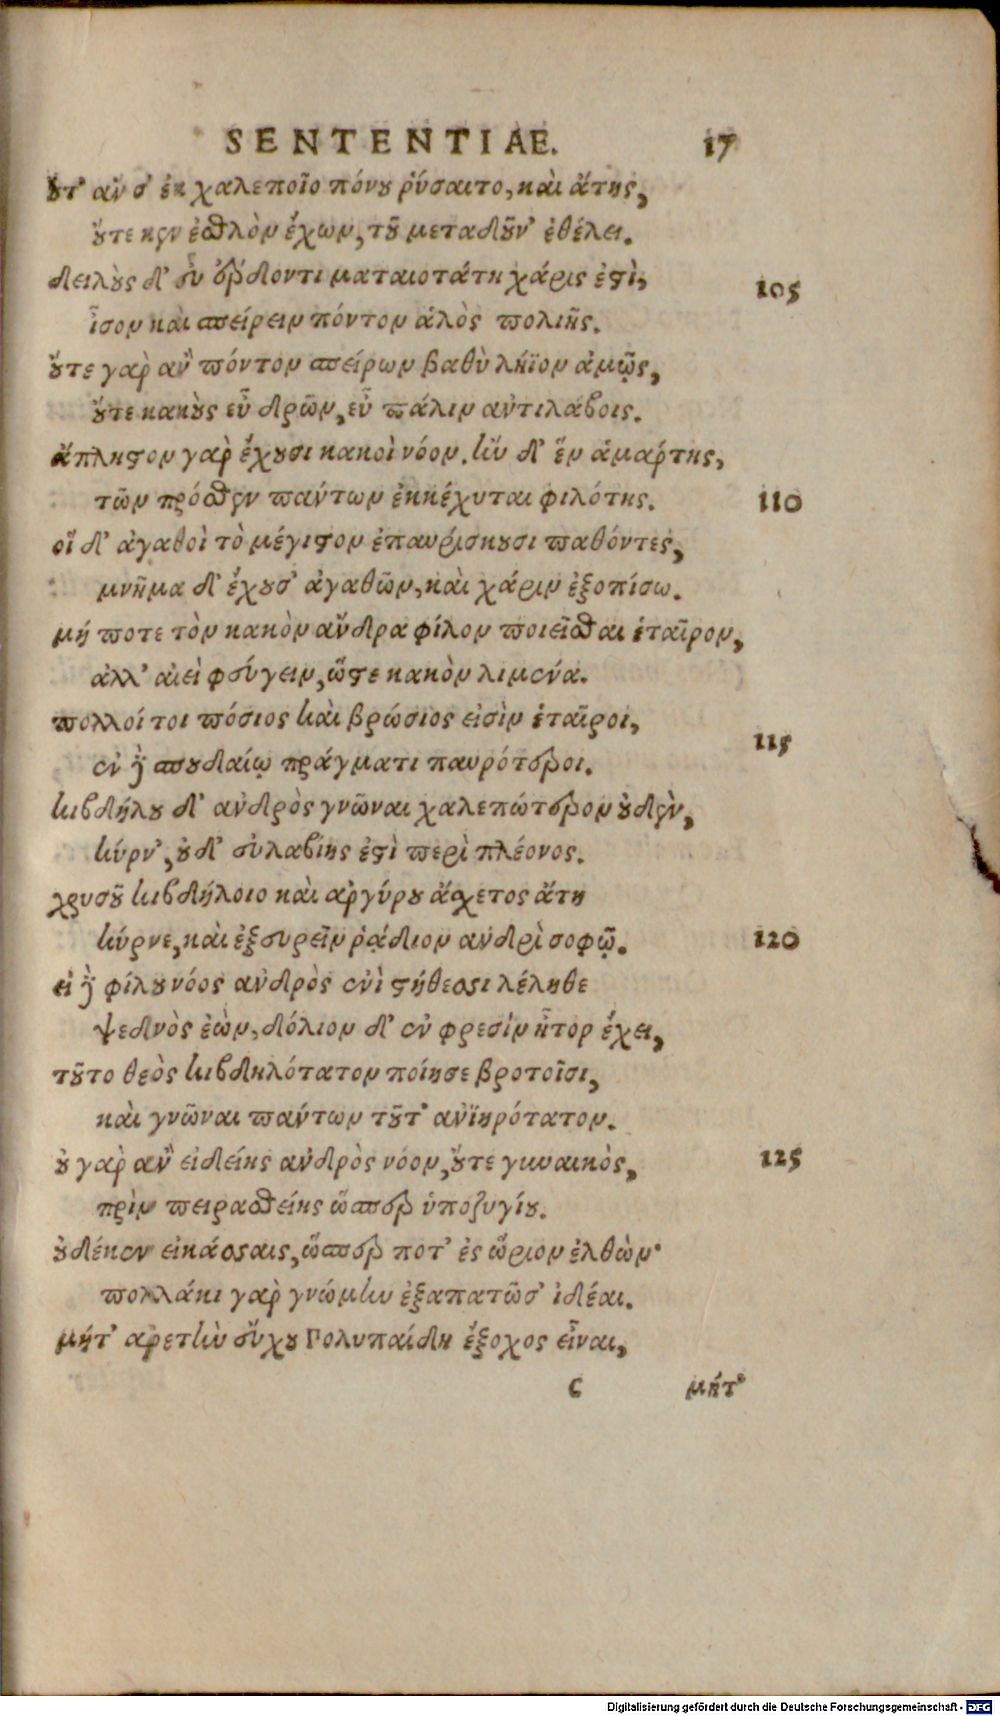 SENTENTIAE. 17
οὔτ' ἄν σ' ἐκ χαλεποῖο πόνου ῥύσαιτο, καὶ ἄτης,
οὔτε κεν ἐσθλὸν ἔχων, τοῦ μεταδοῦν' ἐθέλει.
δειλοὺς δ' εὖ ἔρδοντι ματαιοτάτη χάρις ἐστὶ, 105
ἶσον καὶ σπείρειν πόντον ἁλὸς πολιῆς.
οὔτε γὰρ ἂν πόντον σπείρων βαθὺ λήϊον ἀμῷς,
οὔτε κακοὺς εὖ δρῶν, εὖ πάλιν ἀντιλάβοις.
ἄπληστον γὰρ ἔχουσι κακοὶ νόον. ἢν δ' ἓν ἁμάρτης,
τῶν πρόσθεν πάντων ἐκκέχυται φιλότης. 110
οἵ δ' ἀγαθοὶ τὸ μέγιστον ἐπαυρίσκουσι παθόντες,
μνῆμα δ' ἔχουσ' ἀγαθῶν, καὶ χάριν ἐξοπίσω.
μή ποτε τὸν κακὸν ἄνδρα φίλον ποιεῖσθαι ἑταῖρον,
ἀλλ' αἰεὶ φεύγειν, ὥστε κακὸν λιμένα.
πολλοί τοι πόσιος καὶ βρώσιος εἰσὶν ἑταῖροι, 115
ἐν δὲ σπουδαίῳ πράγματι παυρότεροι.
κιβδήλου δ' ἀνδρὸς γνῶναι χαλεπώτερον οὐδὲν,
κύρν', οὐδ' εὐλαβίης ἐστὶ περὶ πλέονος.
χρυσοῦ κιβδήλοιο καὶ ἀργύρου ἄσχετος ἄτη
κύρνε, καὶ ἐξευρεῖν ῥᾴδιον ἀνδρὶ σοφῷ. 120
εἰ δὲ φίλου νόος ἀνδρὸς ἐνὶ στήθεσσι λέληθε
ψεδνὸς ἐὼν, δόλιον δ' ἐν φρεσὶν ἦτορ ἔχει,
τοῦτο θεὸς κιβδηλότατον ποίησε βροτοῖσι,
καὶ γνῶναι πάντων τοῦτ' ἀνϊηρότατον.
οὐ γὰρ ἂν εἰδείης ἀνδρὸς νόον, οὔτε γυναικὸς, 125
πρὶν πειρασθείης ὥσπερ ὑποζυγίου.
οὐδέ κεν εἰκάσσαις, ὥσπερ ποτ' ἐς ὥριον ἐλθὼν·
πολλάκι γὰρ γνώμην ἐξαπατῶσ' ἰδέαι.
μήτ' ἀρετὴν εὔχου Πολυπαίδη ἔξοχος εἶναι,
c μήτ'
Digitalisierung gefördert durch die Deutsche Forschungsgemeinschaft - DFG